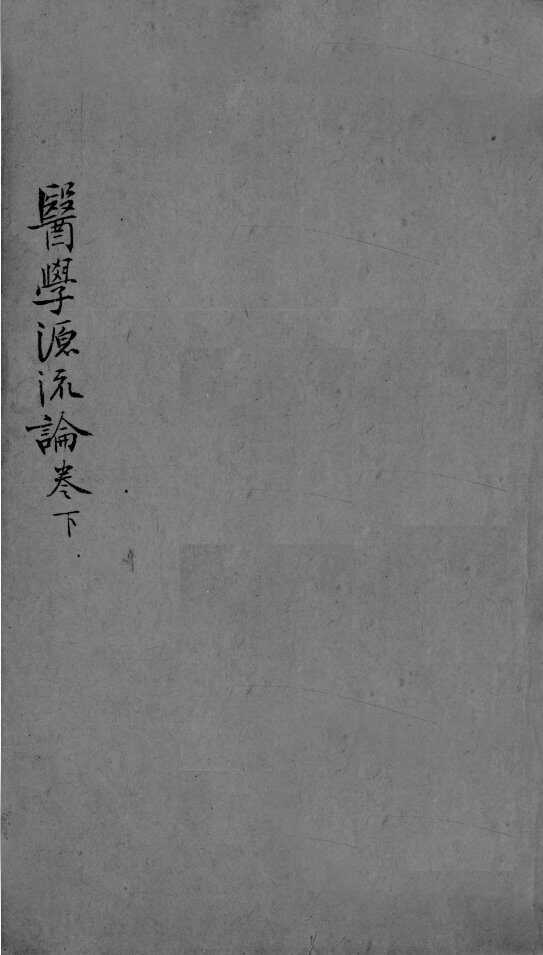 醫學源流論卷下